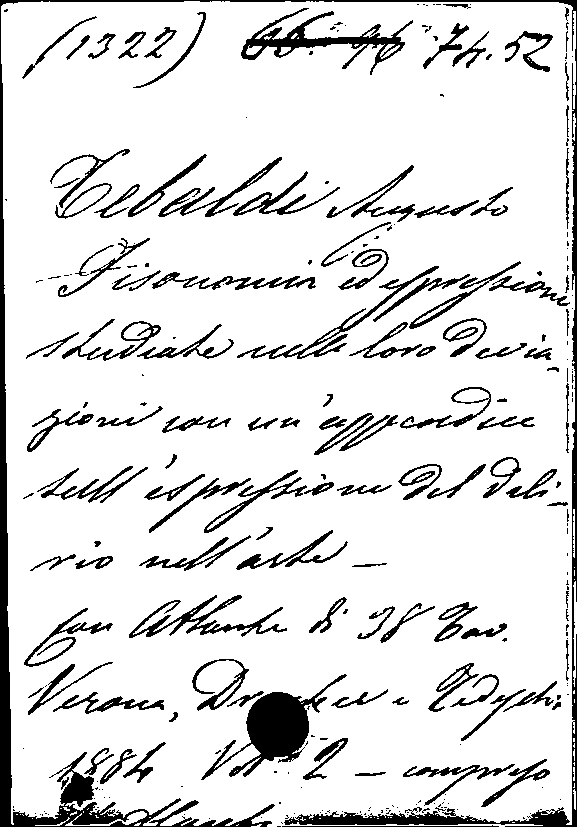 (1322) 66. 96 74.52
Tebaldi Augusto
Fisonomia ed espressione
studiate nelle loro devia-
zioni con un'appendice
sull'espressione del deli-
rio nell'arte –
Con Atlante di 38 Tav.
Verona, Drucker e Tedeschi
1884 Vol. 2 – compreso
l'Atlante